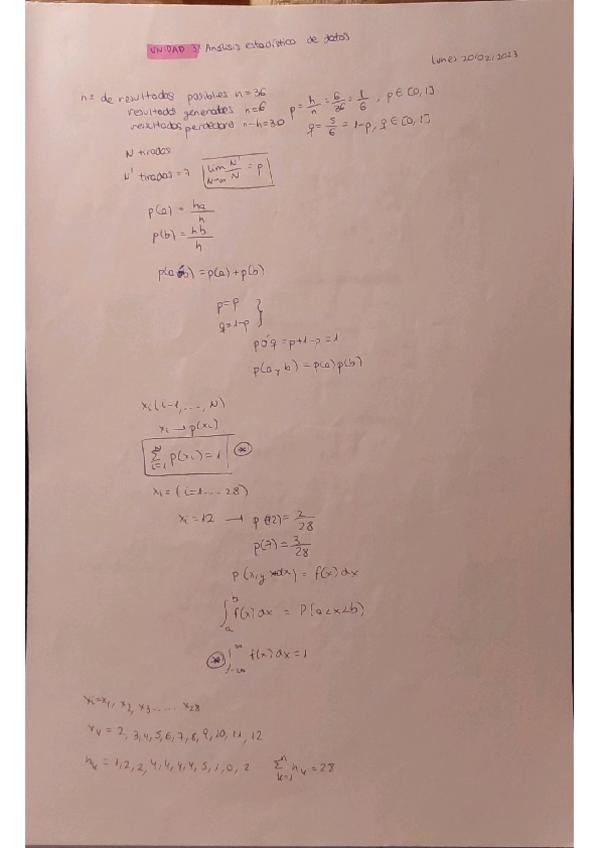 UNIDAD 3: Análisis estadístico de datos
Lunes 20/02/2023
n = de resultados posibles n=36
resultados generadores h=6
resultados perdedora n-h=30
p = h/n = 6/36 = 1/6, p ∈ [0,1]
q = 5/6 = 1-p, q ∈ [0,1]
N tiradas
N' tiradas = 7
lim N→∞ N'/N = p
p(a) = ha/n
p(b) = hb/n
p(a ó b) = p(a)+p(b)
p=p
q=1-p }
p ó q = p+1-p=1
p(a y b) = p(a)p(b)
xi (i=1, ..., N)
xi → p(xi)
∑ i=1 N p(xi) = 1 *
xi = (i=1...28)
xi = 12 → p(12) = 2/28
p(7) = 3/28
p(x, y x+dx) = f(x) dx
∫ a b f(x) dx = P(a<x<b)
* ∫ -∞ ∞ f(x) dx = 1
xi = x1, x2, x3..... x28
xk = 2, 3, 4, 5, 6, 7, 8, 9, 10, 11, 12
nk = 1, 2, 2, 4, 4, 4, 4, 5, 1, 0, 2
∑ k=1 n nk = 28